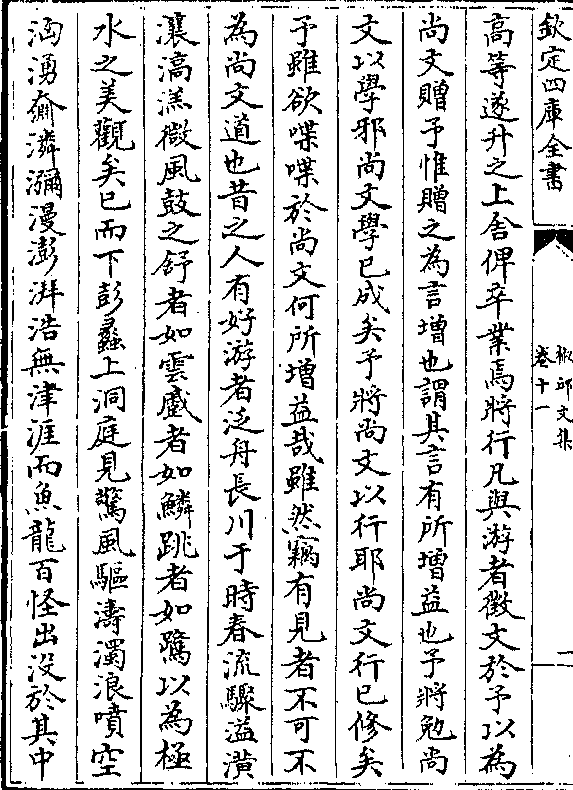 欽定四庫全書
椒邱文集
卷十一
一
高等遂升之上舍俾卒業焉將行凡與游者徵文於予以為
尚文贈予惟贈之為言增也謂其言有所增益也予將勉尚
文以學邪尚文學已成矣予將尚文以行耶尚文行已修矣
予雖欲喋喋於尚文何所增益哉雖然竊有見者不可不
為尚文道也昔之人有好游者泛舟長川于時春流驟溢潢
瀼滈㵝微風鼓之舒者如雲戲者如鱗跳者如鷺以為極
水之美觀矣已而下彭蠡上洞庭見驚風驅濤濁浪噴空
洶湧奫潾瀰漫澎湃浩無津涯而魚龍百怪出沒於其中